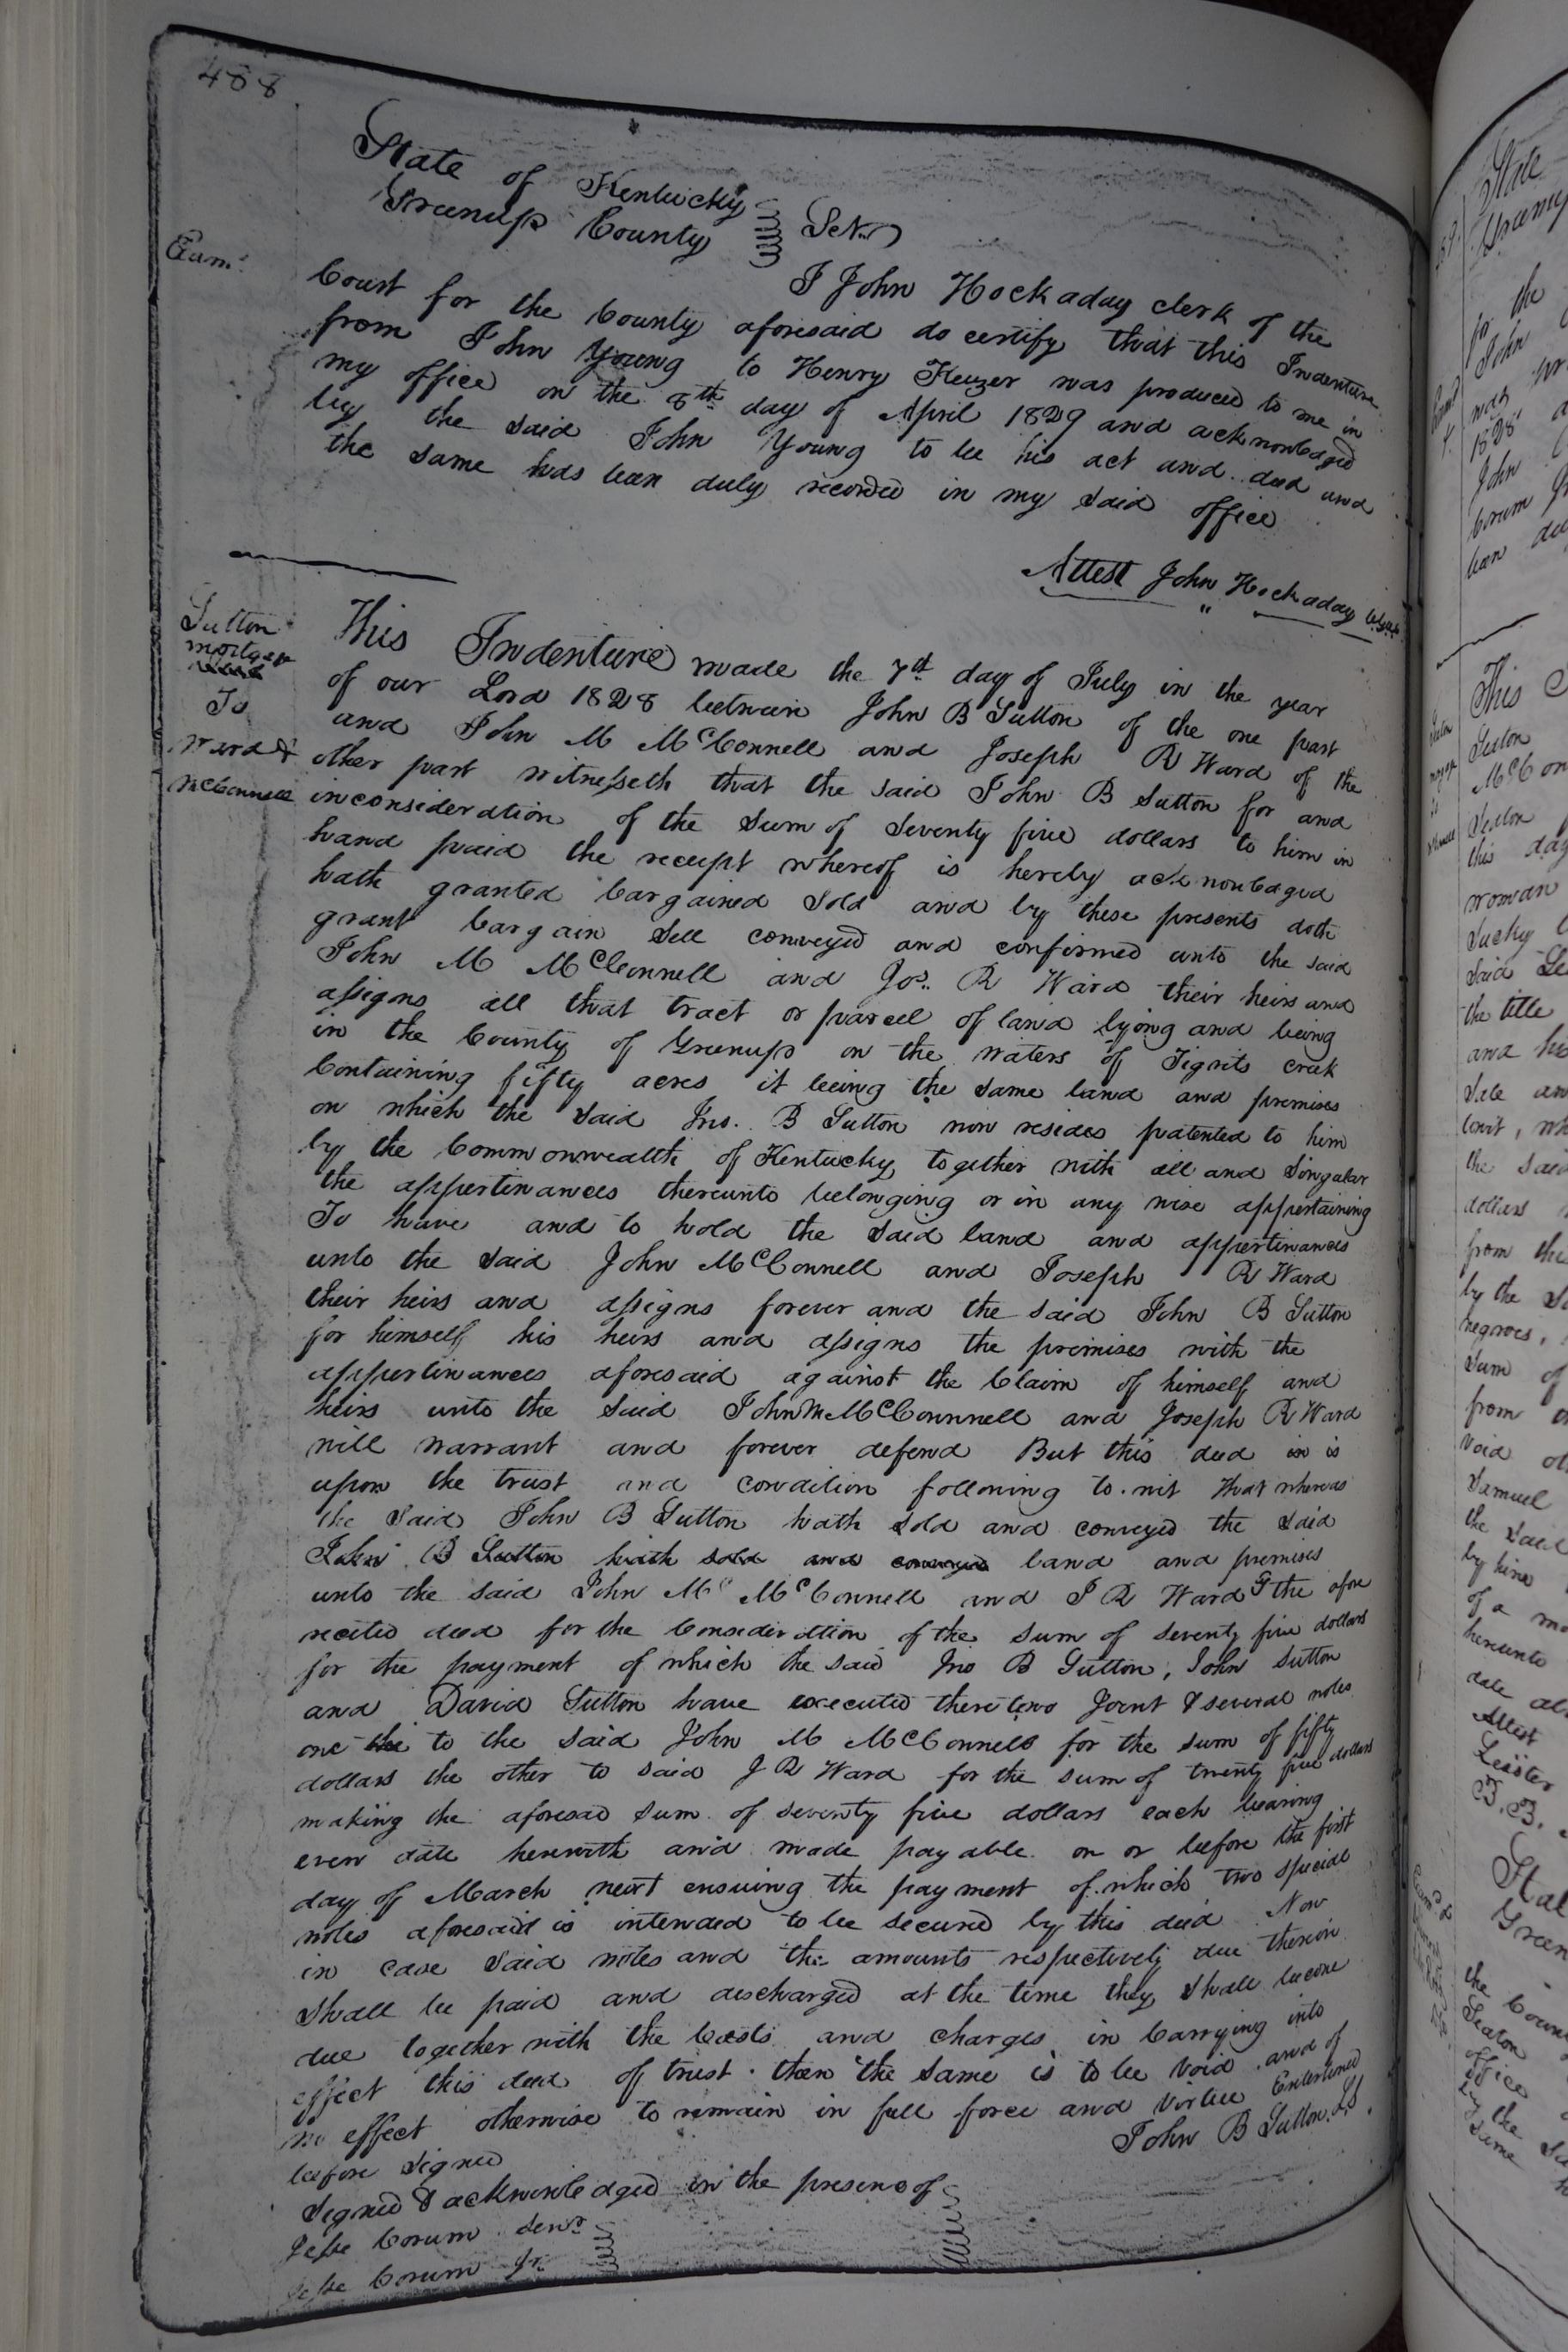 488
State of Kentucky
Greenup County Sct.
Exam.
I John Hockaday clerk of the
Court for the County aforesaid do certify that this Indenture
from John Young to Henry was produced to me in
my office on the 8th day of April 1829 and acknowledged
by the said John Young to be his act and deed and
the same has been duly recorded in my said office
Attest John Hockaday
Sutton
mortgage
To
Ward &
McConnell
This Indenture made the 7th day of July in the year
of our Lord 1828 between John B Sutton of the one part
and John M McConnell and Joseph R Ward of the
other part witnesseth that the said John B Sutton for and
inconsideration of the sum of seventy five dollars to him in
hand paid the receipt whereof is hereby acknowledged
hath granted bargained sold and by these presents doth
grant bargain sell conveyed and confirmed unto the said
John M McConnell and Jos. R Ward their heirs and
assigns all that tract or parcel of land lying and being
in the County of Greenup on the waters of Tigrits creek
Containing fifty acres it being the same land and premises
on which the said Jno. B Sutton now resides patented to him
by the Commonwealth of Kentucky together with all and Singular
the appertinances thereunto belonging or in any wise appertaining
To have and to hold the said land and appertinances
unto the said John McConnell and Joseph R Ward
their heirs and assigns forever and the said John B Sutton
for himself his heirs and assigns the premises with the
appertinances aforesaid against the Claim of himself and
heirs unto the said John M McConnnell and Joseph R Ward
will warrant and forever defend But this deed is
upon the trust and condition following to.wit that whereas
the said John B Sutton hath sold and conveyed the said
John B Sutton hath sold and conveyed land and premises
unto the said John M McConnell and J R Ward the afore
recited deed for the Consideration of the sum of seventy five dollars
for the payment of which the said Jno B Sutton, John Sutton
and David Sutton have executed there two Joint & several notes
one to the said John M McConnell for the sum of fifty
dollars the other to said J R Ward for the sum of twenty five dollars
making the aforesad sum of seventy five dollars each bearing
even date herewith and made payable on or before the first
day of March next ensuing the payment of which two special
notes aforesaid is intended to be secured by this deed Now
in case said notes and the amounts respectively due therein
shall be paid and discharged at the time they shall become
due together with the Costs and charges in Carrying into
effect this deed of trust. then the same is to be void and of
no effect otherwise to remain in full force and virtue Enterlined
before signed
John B Sutton. LS.
Signed & acknowledged in the presence of
Jesse Corum Senr
Jesse Corum Jr.